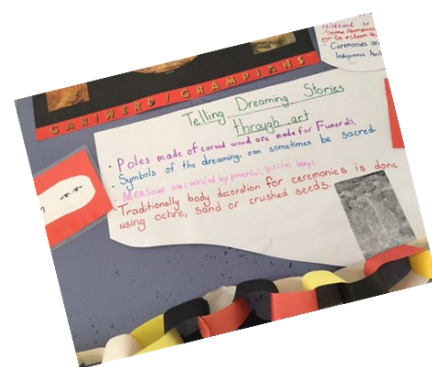 GARIWERD/GRAMPIANS
Telling Dreaming Stories
through art
• Poles made of corved wood are made for Funerals.
• Symbols of the dreaming. can sometimes be sacred
are controled by powerful, spirital beings
• Traditionally body decoration for ceremonies is done
using ochre, sand or crushed seeds.
or
• Ceremonies
Indigenous